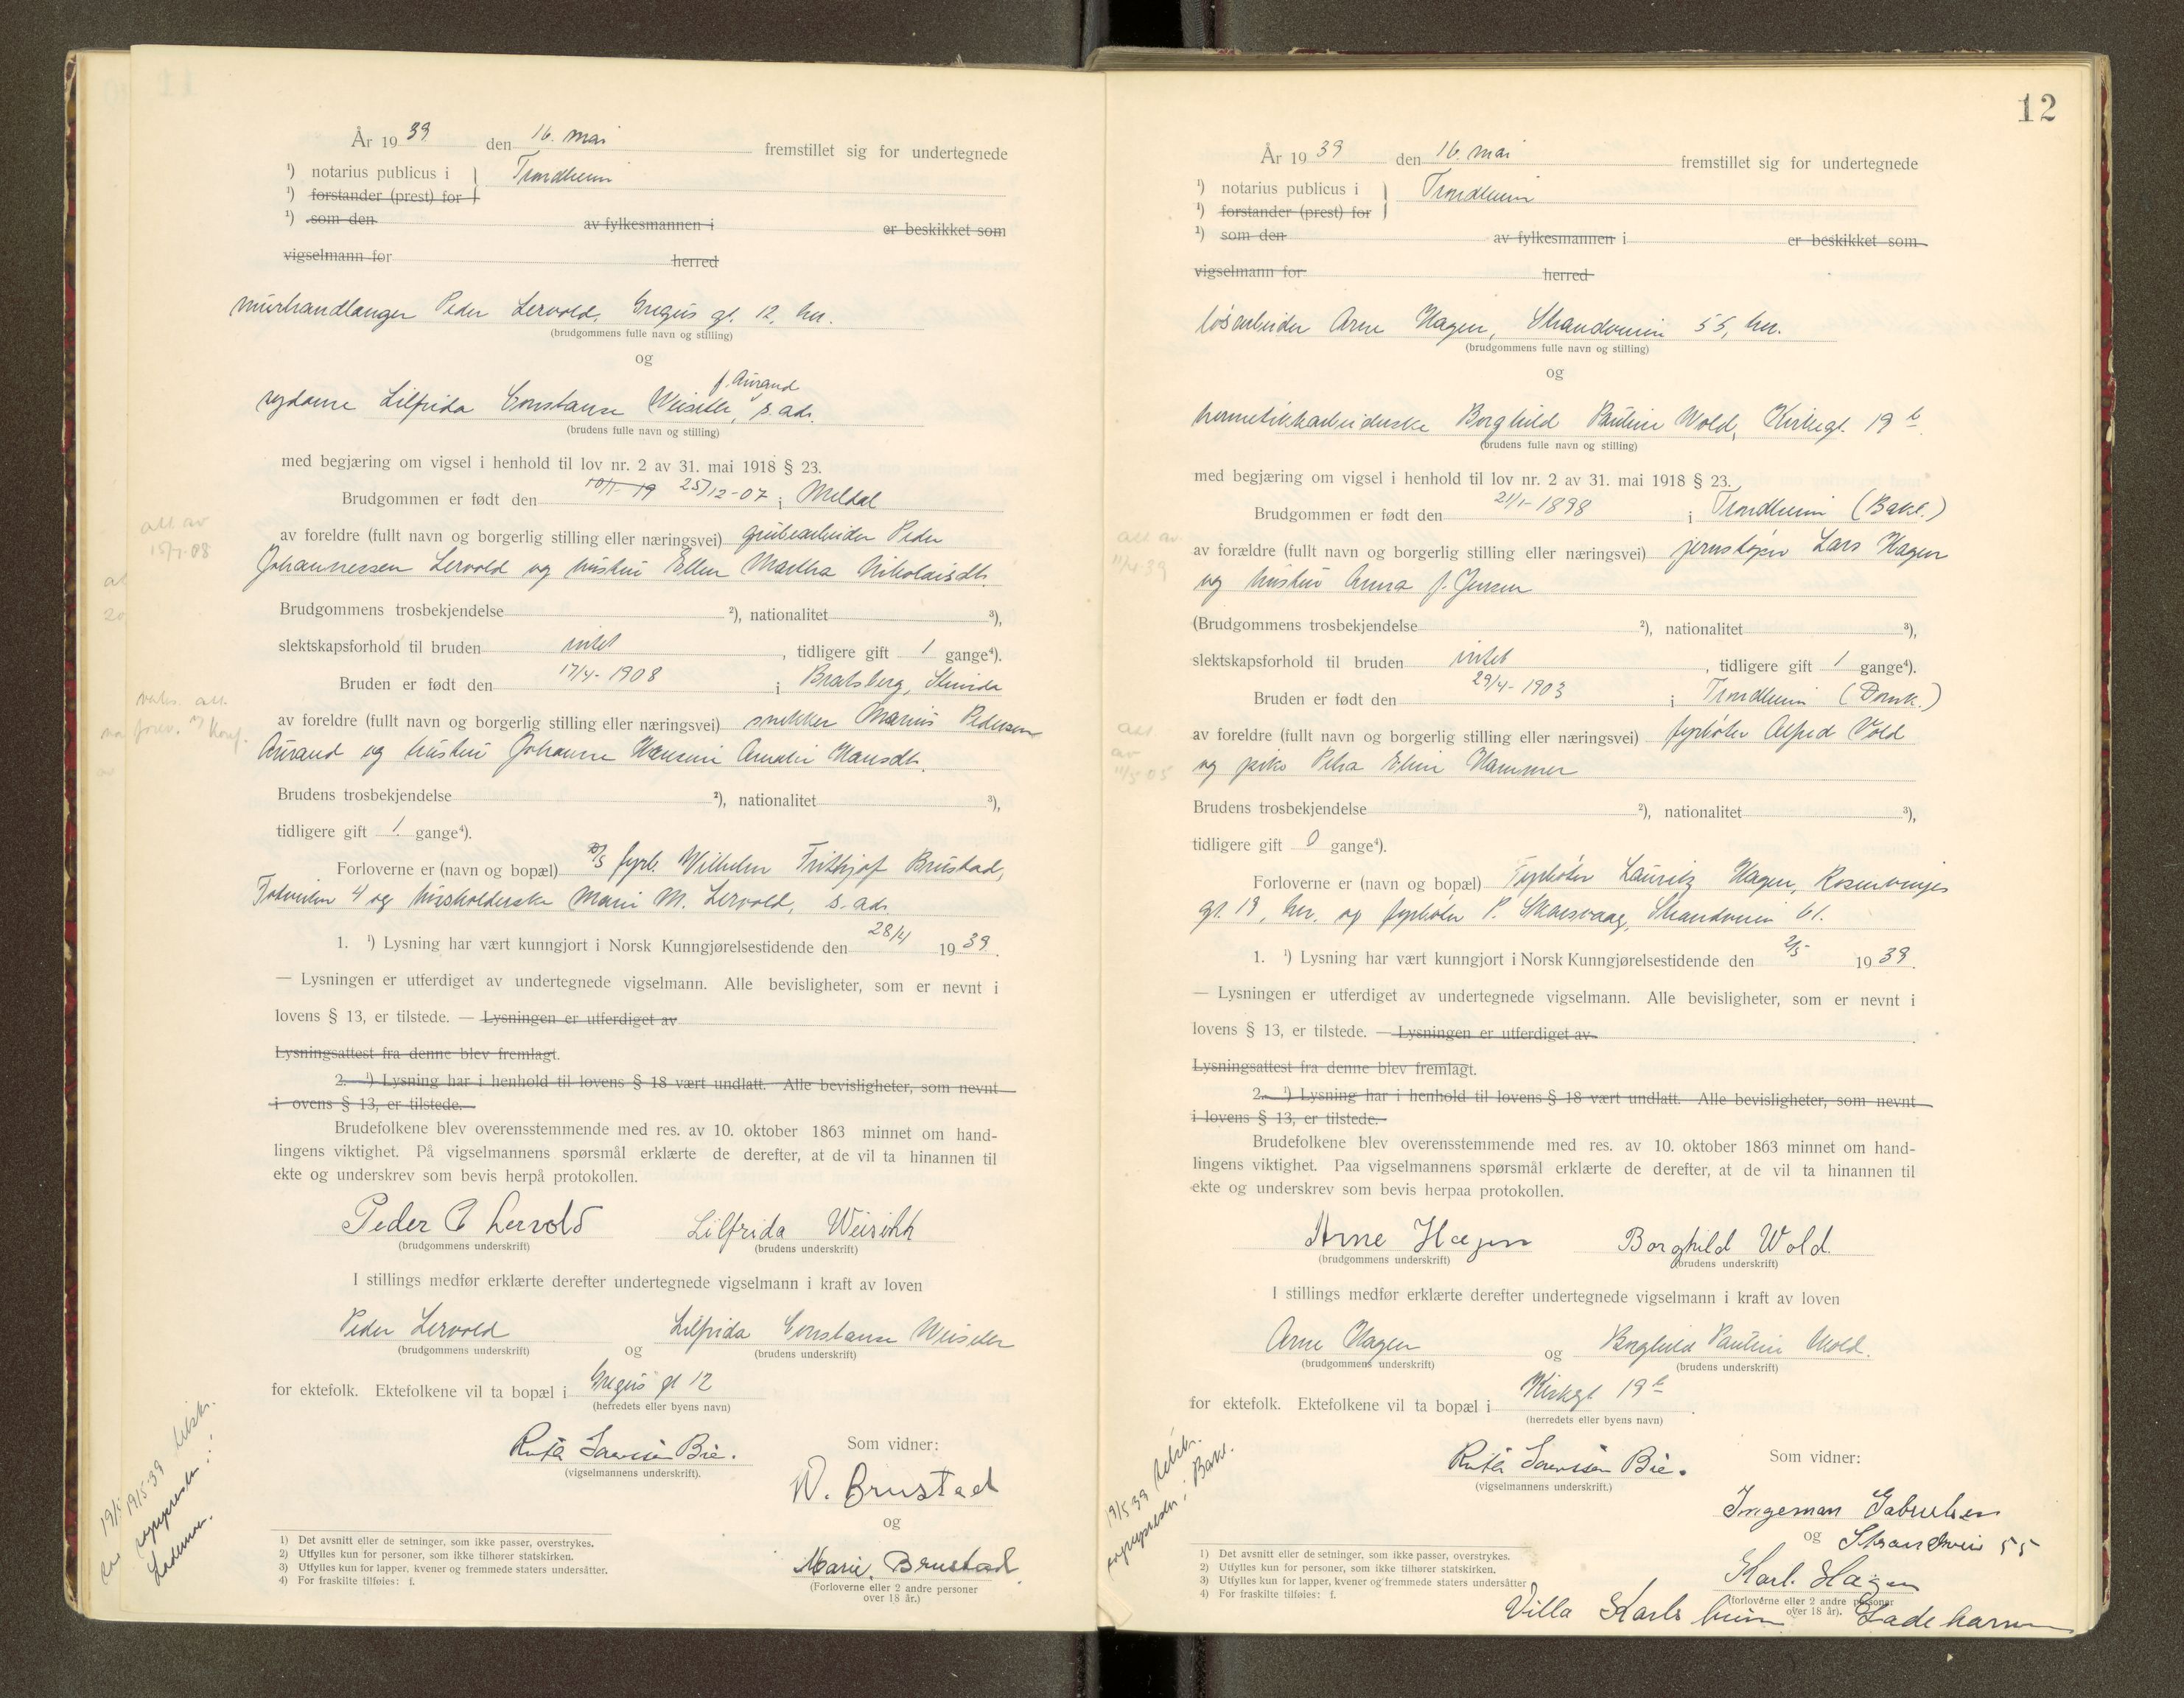 År 19 39 den 16. mai fremstillet sig for undertegnede
¹) notarius publicus i Trondheim
¹) forstander (prest) for
¹) som den av fylkesmannen i er beskikket som
vigselmann for herred
murhandlanger Peder Lervold, Gregus gt. 12, her.
(brudgommens fulle navn og stilling)
og
f. Aurand
sydame Lilfrida Constanse s. ads.
(brudens fulle navn og stilling)
med begjæring om vigsel i henhold til lov nr. 2 av 31. mai 1918 § 23.
Brudgommen er født den 25/12-07 i Meldal
av foreldre (fullt navn og borgerlig stilling eller næringsvei) grubearbeider Peder
Johannessen Lervold og hustru Ellen Martha Nikolaisdtr.
Brudgommens trosbekjendelse ²), nationalitet ³),
slektskapsforhold til bruden intet , tidligere gift 1 gange⁴).
Bruden er født den 17/4-1908 i Bratsberg, Strinda
av foreldre (fullt navn og borgerlig stilling eller næringsvei) snekker Marius Pedersen
Aurand og hustru Johanne Hansine Amalie Hansdtr.
Brudens trosbekjendelse ²), nationalitet ³),
tidligere gift 1. gange⁴).
Forloverne er (navn og bopæl) fyrb. Wilhelm Frithjof Brustad,
4 og husholderske Marie M. Lervold, s. ads.
1. ¹) Lysning har vært kunngjort i Norsk Kunngjørelsestidende den 28/4 19 39.
— Lysningen er utferdiget av undertegnede vigselmann. Alle bevisligheter, som er nevnt i
lovens § 13, er tilstede. — Lysningen er utferdiget av
Lysningsattest fra denne blev fremlagt.
2. ¹) Lysning har i henhold til lovens § 18 vært undlatt. Alle bevisligheter, som nevnt
i ovens § 13, er tilstede.
Brudefolkene blev overensstemmende med res. av 10. oktober 1863 minnet om hand-
lingens viktighet. På vigselmannens spørsmål erklærte de derefter, at de vil ta hinannen til
ekte og underskrev som bevis herpå protokollen.
Peder Lervold Lilfrida
(brudgommens underskrift) (brudens underskrift)
I stillings medfør erklærte derefter undertegnede vigselmann i kraft av loven
Peder Lervold og Lilfrida Constanse
(brudgommens underskrift) (brudens underskrift)
for ektefolk. Ektefolkene vil ta bopæl i Gregus gt 12
(herredets eller byens navn)
Som vidner:
Bie.
(vigselmannens underskrift).
W. Brustad
og
Marie Brustad
(Forloverne eller 2 andre personer
over 18 år.)
1) Det avsnitt eller de setninger, som ikke passer, overstrykes.
2) Utfylles kun for personer, som ikke tilhører statskirken.
3) Utfylles kun for lapper, kvener og fremmede staters undersåtter.
4) For fraskilte tilføies: f.
att av
15/1-08
12
År 19 39 den 16. mai fremstillet sig for undertegnede
¹) notarius publicus i Trondheim
¹) forstander (prest) for
¹) som den av fylkesmannen i er beskikket som
vigselmann for herred
løsarbeider Arne Hagen, Strandveien 55, her.
(brudgommens fulle navn og stilling)
og
hermetikkarbeiderske Borghild Pauline Wold, Kirkegt. 19 b
(brudens fulle navn og stilling)
med begjæring om vigsel i henhold til lov nr. 2 av 31. mai 1918 § 23.
Brudgommen er født den 21/1-1898 i Trondheim (Bakl.)
av forældre (fullt navn og borgerlig stilling eller næringsvei) jernstøper Lars Hagen
og hustru Anna f. Jensen
(Brudgommens trosbekjendelse ²), nationalitet ³),
slektskapsforhold til bruden intet , tidligere gift 1 gange⁴).
Bruden er født den 29/4-1903 i Trondheim (Domk.)
av foreldre (fullt navn og borgerlig stilling eller næringsvei) fyrbøter Alfred Vold
og pike Petra Eline Hammer
Brudens trosbekjendelse ²), nationalitet ³),
tidligere gift 0 gange⁴).
Forloverne er (navn og bopæl) Fyrbøter Lauritz Hagen, Rosenvinges
gt. 19, her. og fyrbøter P. Strandveien 61.
1. ¹) Lysning har vært kunngjort i Norsk Kunngjørelsestidende den 2/5 19 39.
— Lysningen er utferdiget av undertegnede vigselmann. Alle bevisligheter, som er nevnt i
lovens § 13, er tilstede. — Lysningen er utferdiget av
Lysningsattest fra denne blev fremlagt.
2. ¹) Lysning har i henhold til lovens § 18 vært undlatt. Alle bevisligheter, som nevnt
i lovens § 13, er tilstede.
Brudefolkene blev overensstemmende med res. av 10. oktober 1863 minnet om hand-
lingens viktighet. Paa vigselmannens spørsmål erklærte de derefter, at de vil ta hinannen til
ekte og underskrev som bevis herpaa protokollen.
Arne Hagen Borghild Wold.
(brudgommens underskrift) (brudens underskrift)
I stillings medfør erklærte derefter undertegnede vigselmann i kraft av loven
Arne Hagen og Borghild Pauline Wold.
(brudgommens underskrift) (brudens underskrift)
for ektefolk. Ektefolkene vil ta bopæl i Kirkegt 19 b
(herredets eller byens navn)
Som vidner:
Bie.
(vigselmannens underskrift.)
Ingeman Gabrielsen
og Strandveien 55
Karl. Hagen
(forloverne eller 2 andre personer
over 18 år).
Villa Karlsheim Ladehamren
1) Det avsnitt eller de setninger, som ikke passer, overstrykes.
2) Utfylles kun for personer, som ikke tilhører statskirken.
3) Utfylles kun for lapper, kvener og fremmede staters undersåtter
4) For fraskilte tilføies: f.
att av
11/4 39
att
av
11/5 05